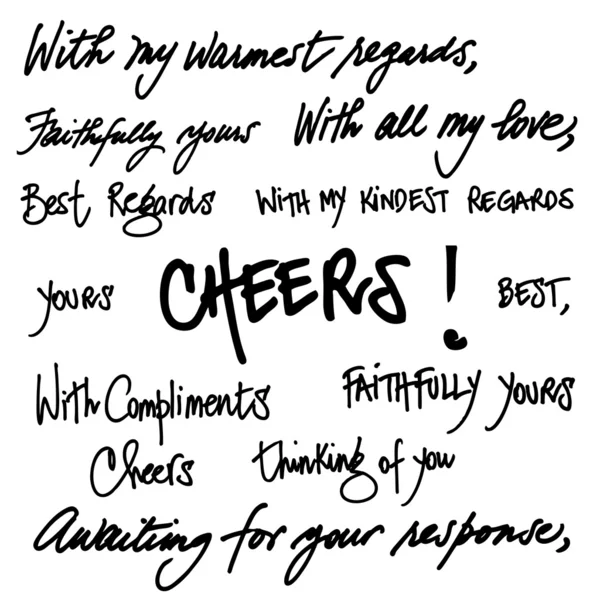 With my warmest regards,
Faithfully yours With all my love,
Best Regards WiTH MY KiNDEST REGARDS
YOURS CHEERS! BEST,
With Compliments FAiTHFULLY YOURS
Cheers thinking of you
Awaiting for your response,